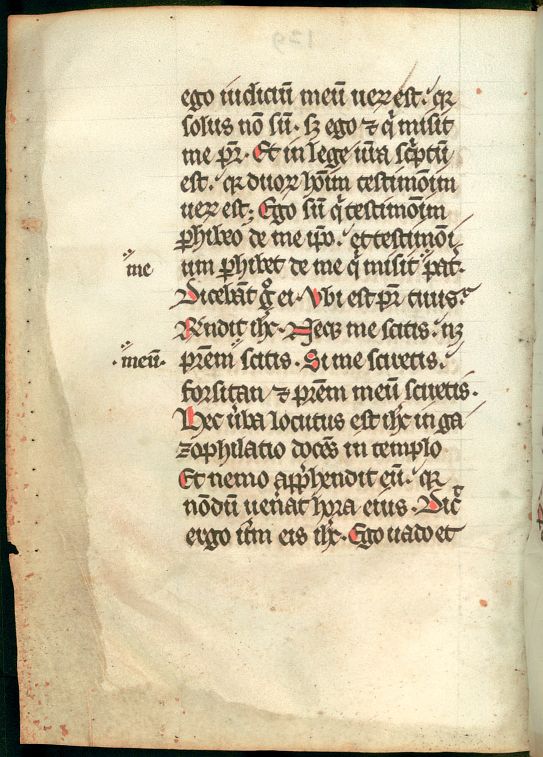 129
ego iudiciū meū ueꝝ est. qꝛ
solus nō sū. sꝫ ego ⁊ qͥ misit
me pr̄. Et in lege ur̄a scͥptū
est. qꝛ duoꝝ hoīm testimoīm
ueꝝ est; Ego sū qͥ testimoīm
ꝑhibeo de me ip̄o. et testimōi
um ꝑhibet de me qͥ misit pat̄.
me
Dicebāt gͦ ei. Vbi est pr̄ tuus.
Rn̄dit ih̄c. Neqꝫ me scitis. nꝫ
meū.
pr̄em scitis. Si me sciretis.
forsitan ⁊ pr̄em meū sciretis.
Hec ūba locutus est ih̄c in ga
zophilatio docēs in templo
Et nemo app̄hendit eū. qꝛ
nōdū uen̄at hora eius. Dic̄
ergo it̄m eis ih̄c. Ego uado et